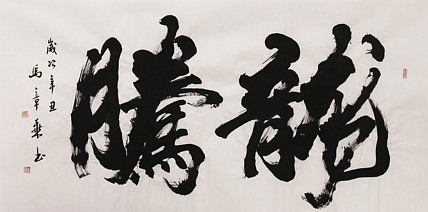 龍騰
歲次辛丑
馬章乘书